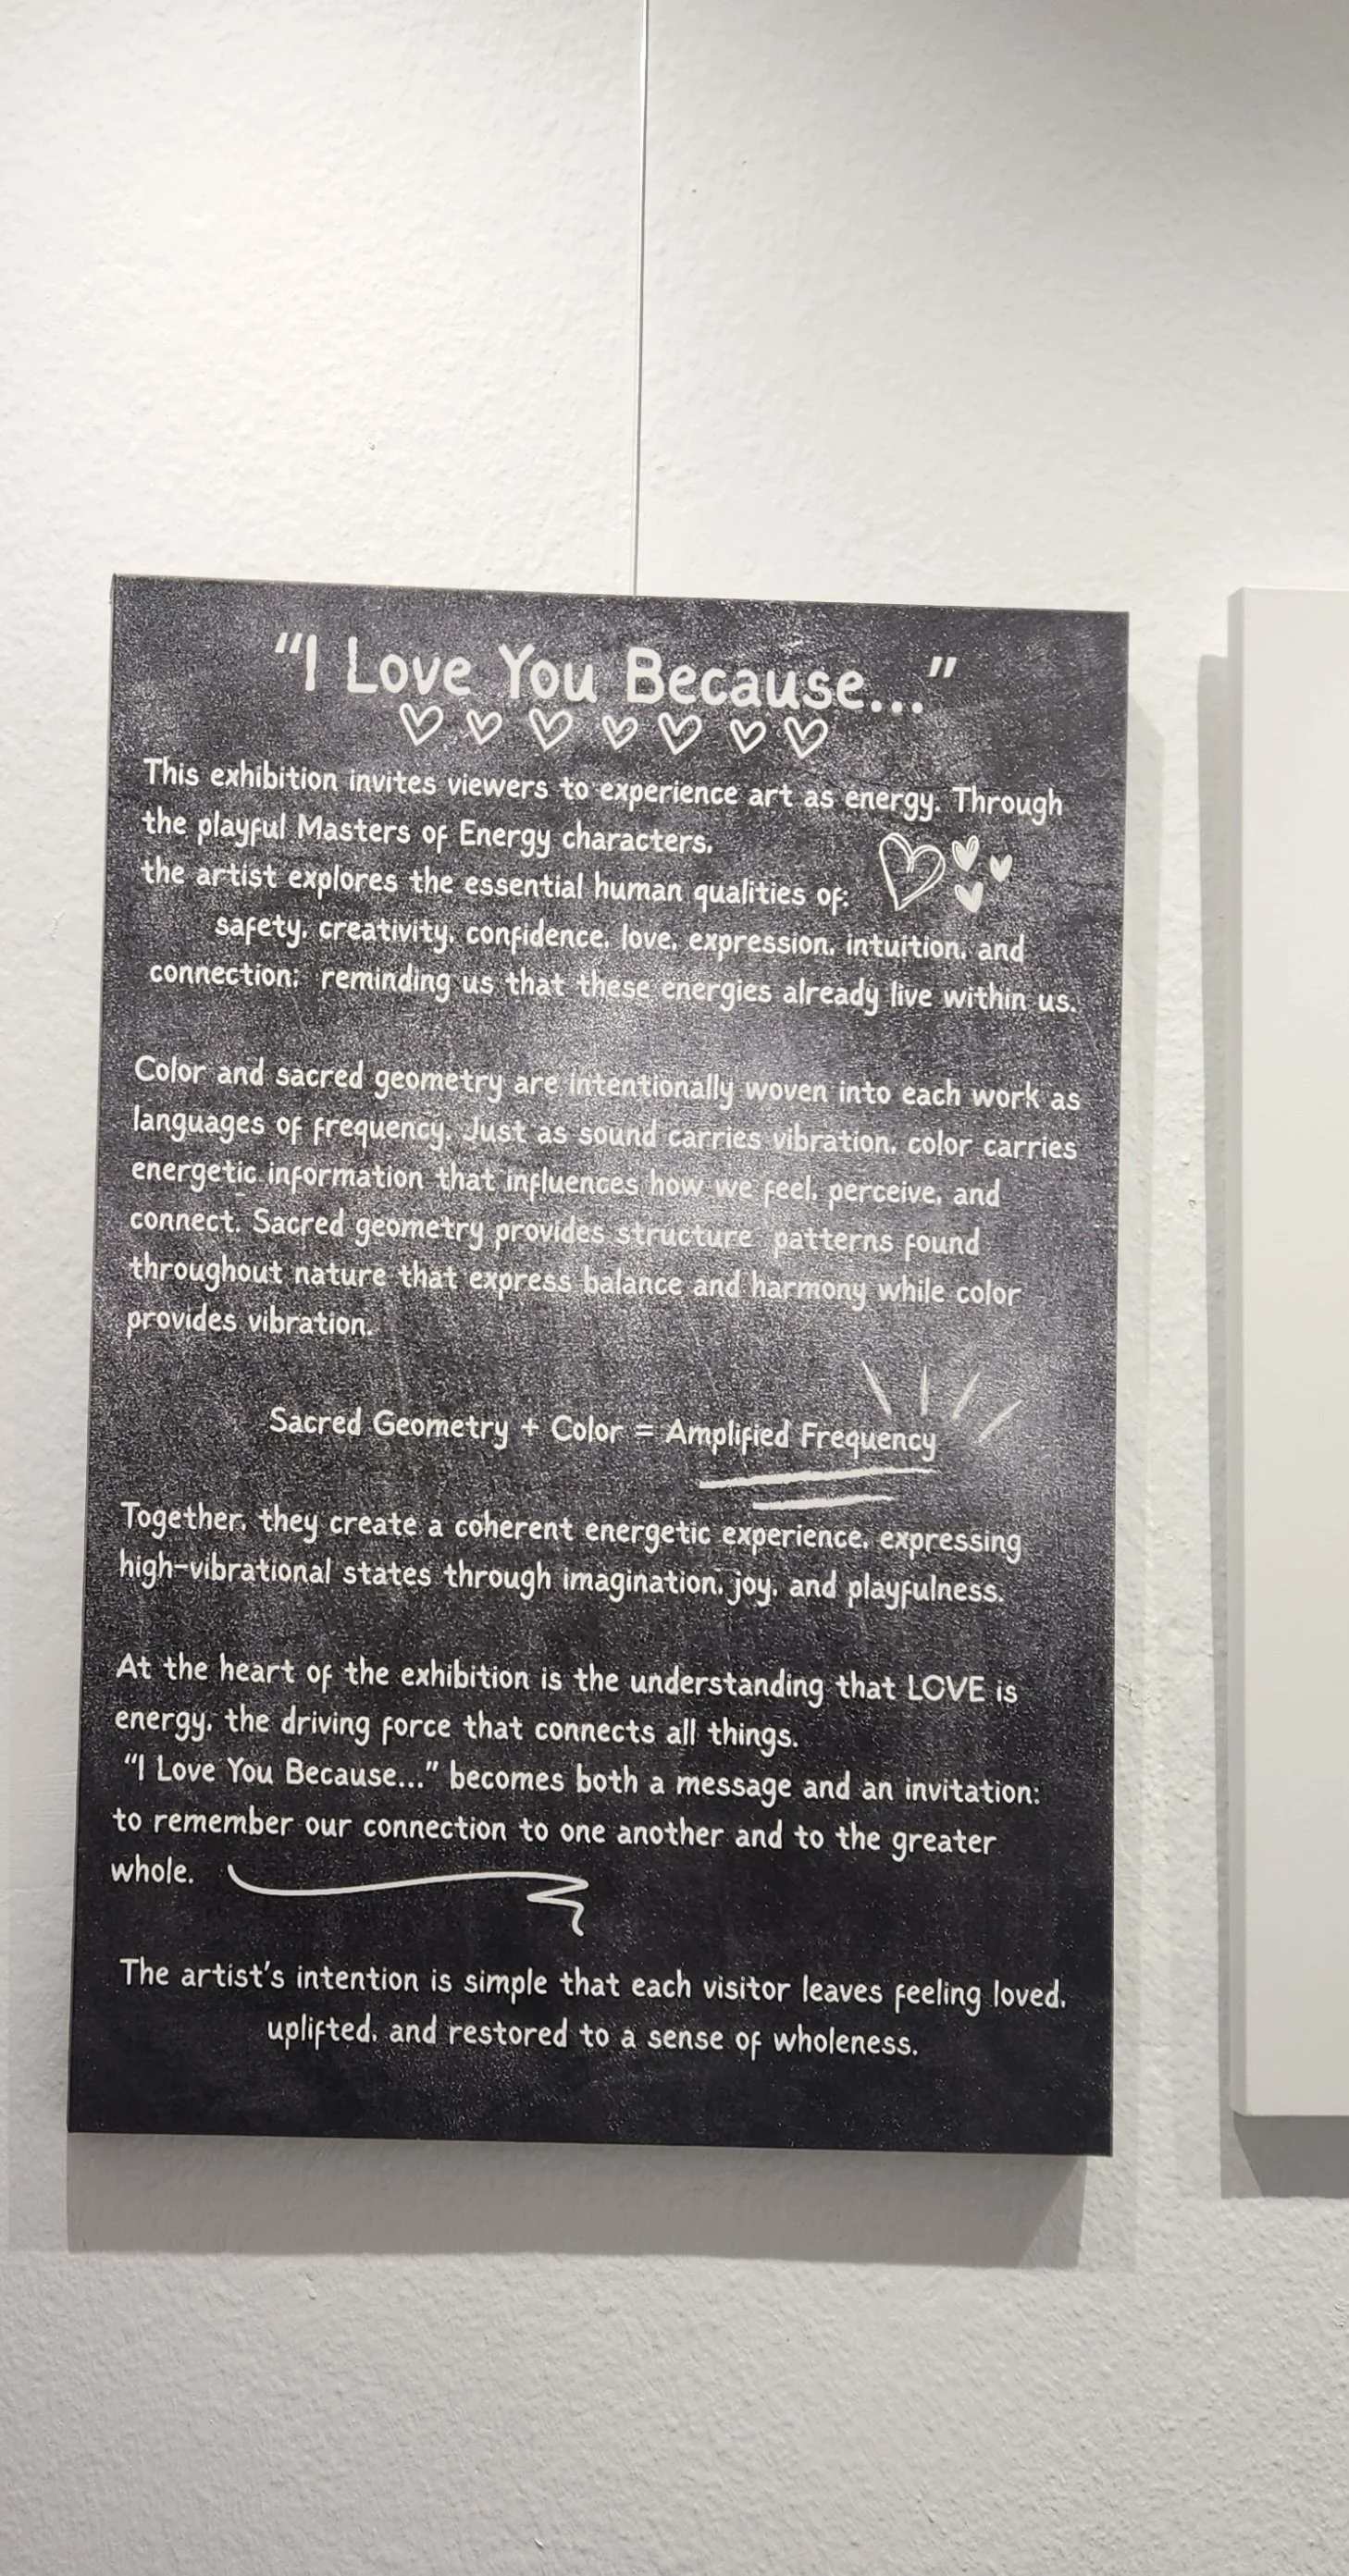 "I Love You Because..."
This exhibition invites viewers to experience art as energy. Through
the playful Masters of Energy characters,
the artist explores the essential human qualities of:
safety, creativity, confidence, love, expression, intuition, and
connection: reminding us that these energies already live within us.
Color and sacred geometry are intentionally woven into each work as
languages of frequency. Just as sound carries vibration, color carries
energetic information that influences how we feel, perceive, and
connect. Sacred geometry provides structure patterns found
throughout nature that express balance and harmony while color
provides vibration.
Sacred Geometry + Color = Amplified Frequency
Together, they create a coherent energetic experience, expressing
high-vibrational states through imagination, joy, and playfulness.
At the heart of the exhibition is the understanding that LOVE is
energy, the driving force that connects all things.
"I Love You Because..." becomes both a message and an invitation:
to remember our connection to one another and to the greater
whole.
The artist's intention is simple that each visitor leaves feeling loved,
uplifted, and restored to a sense of wholeness.